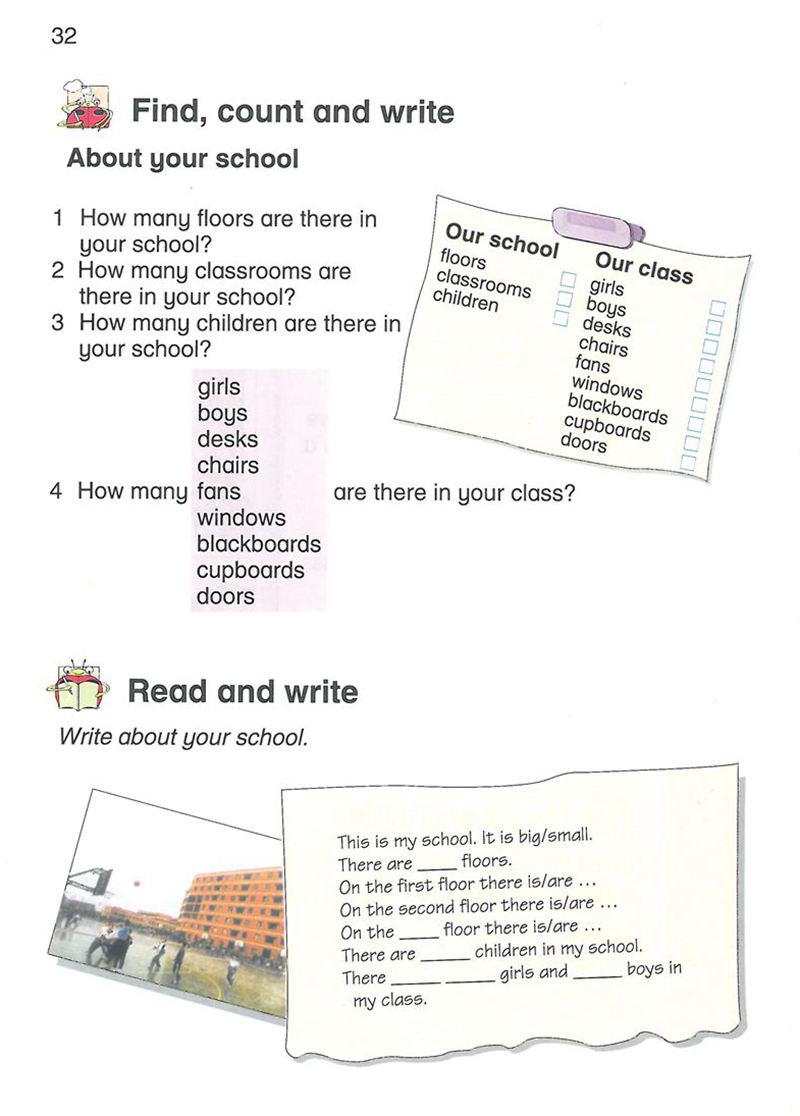 32
Find, count and write
About your school
1 How many floors are there in
your school?
2 How many classrooms are
there in your school?
3 How many children are there in
your school?
girls
boys
desks
chairs
4 How many fans are there in your class?
windows
blackboards
cupboards
doors
Our school
floors
classrooms
children
Our class
girls
boys
desks
chairs
fans
windows
blackboards
cupboards
doors
Read and write
Write about your school.
This is my school. It is big/small.
There are ____ floors.
On the first floor there is/are ...
On the second floor there is/are ...
On the ____ floor there is/are ...
There are _____ children in my school.
There _____ _____ girls and _____ boys in
my class.